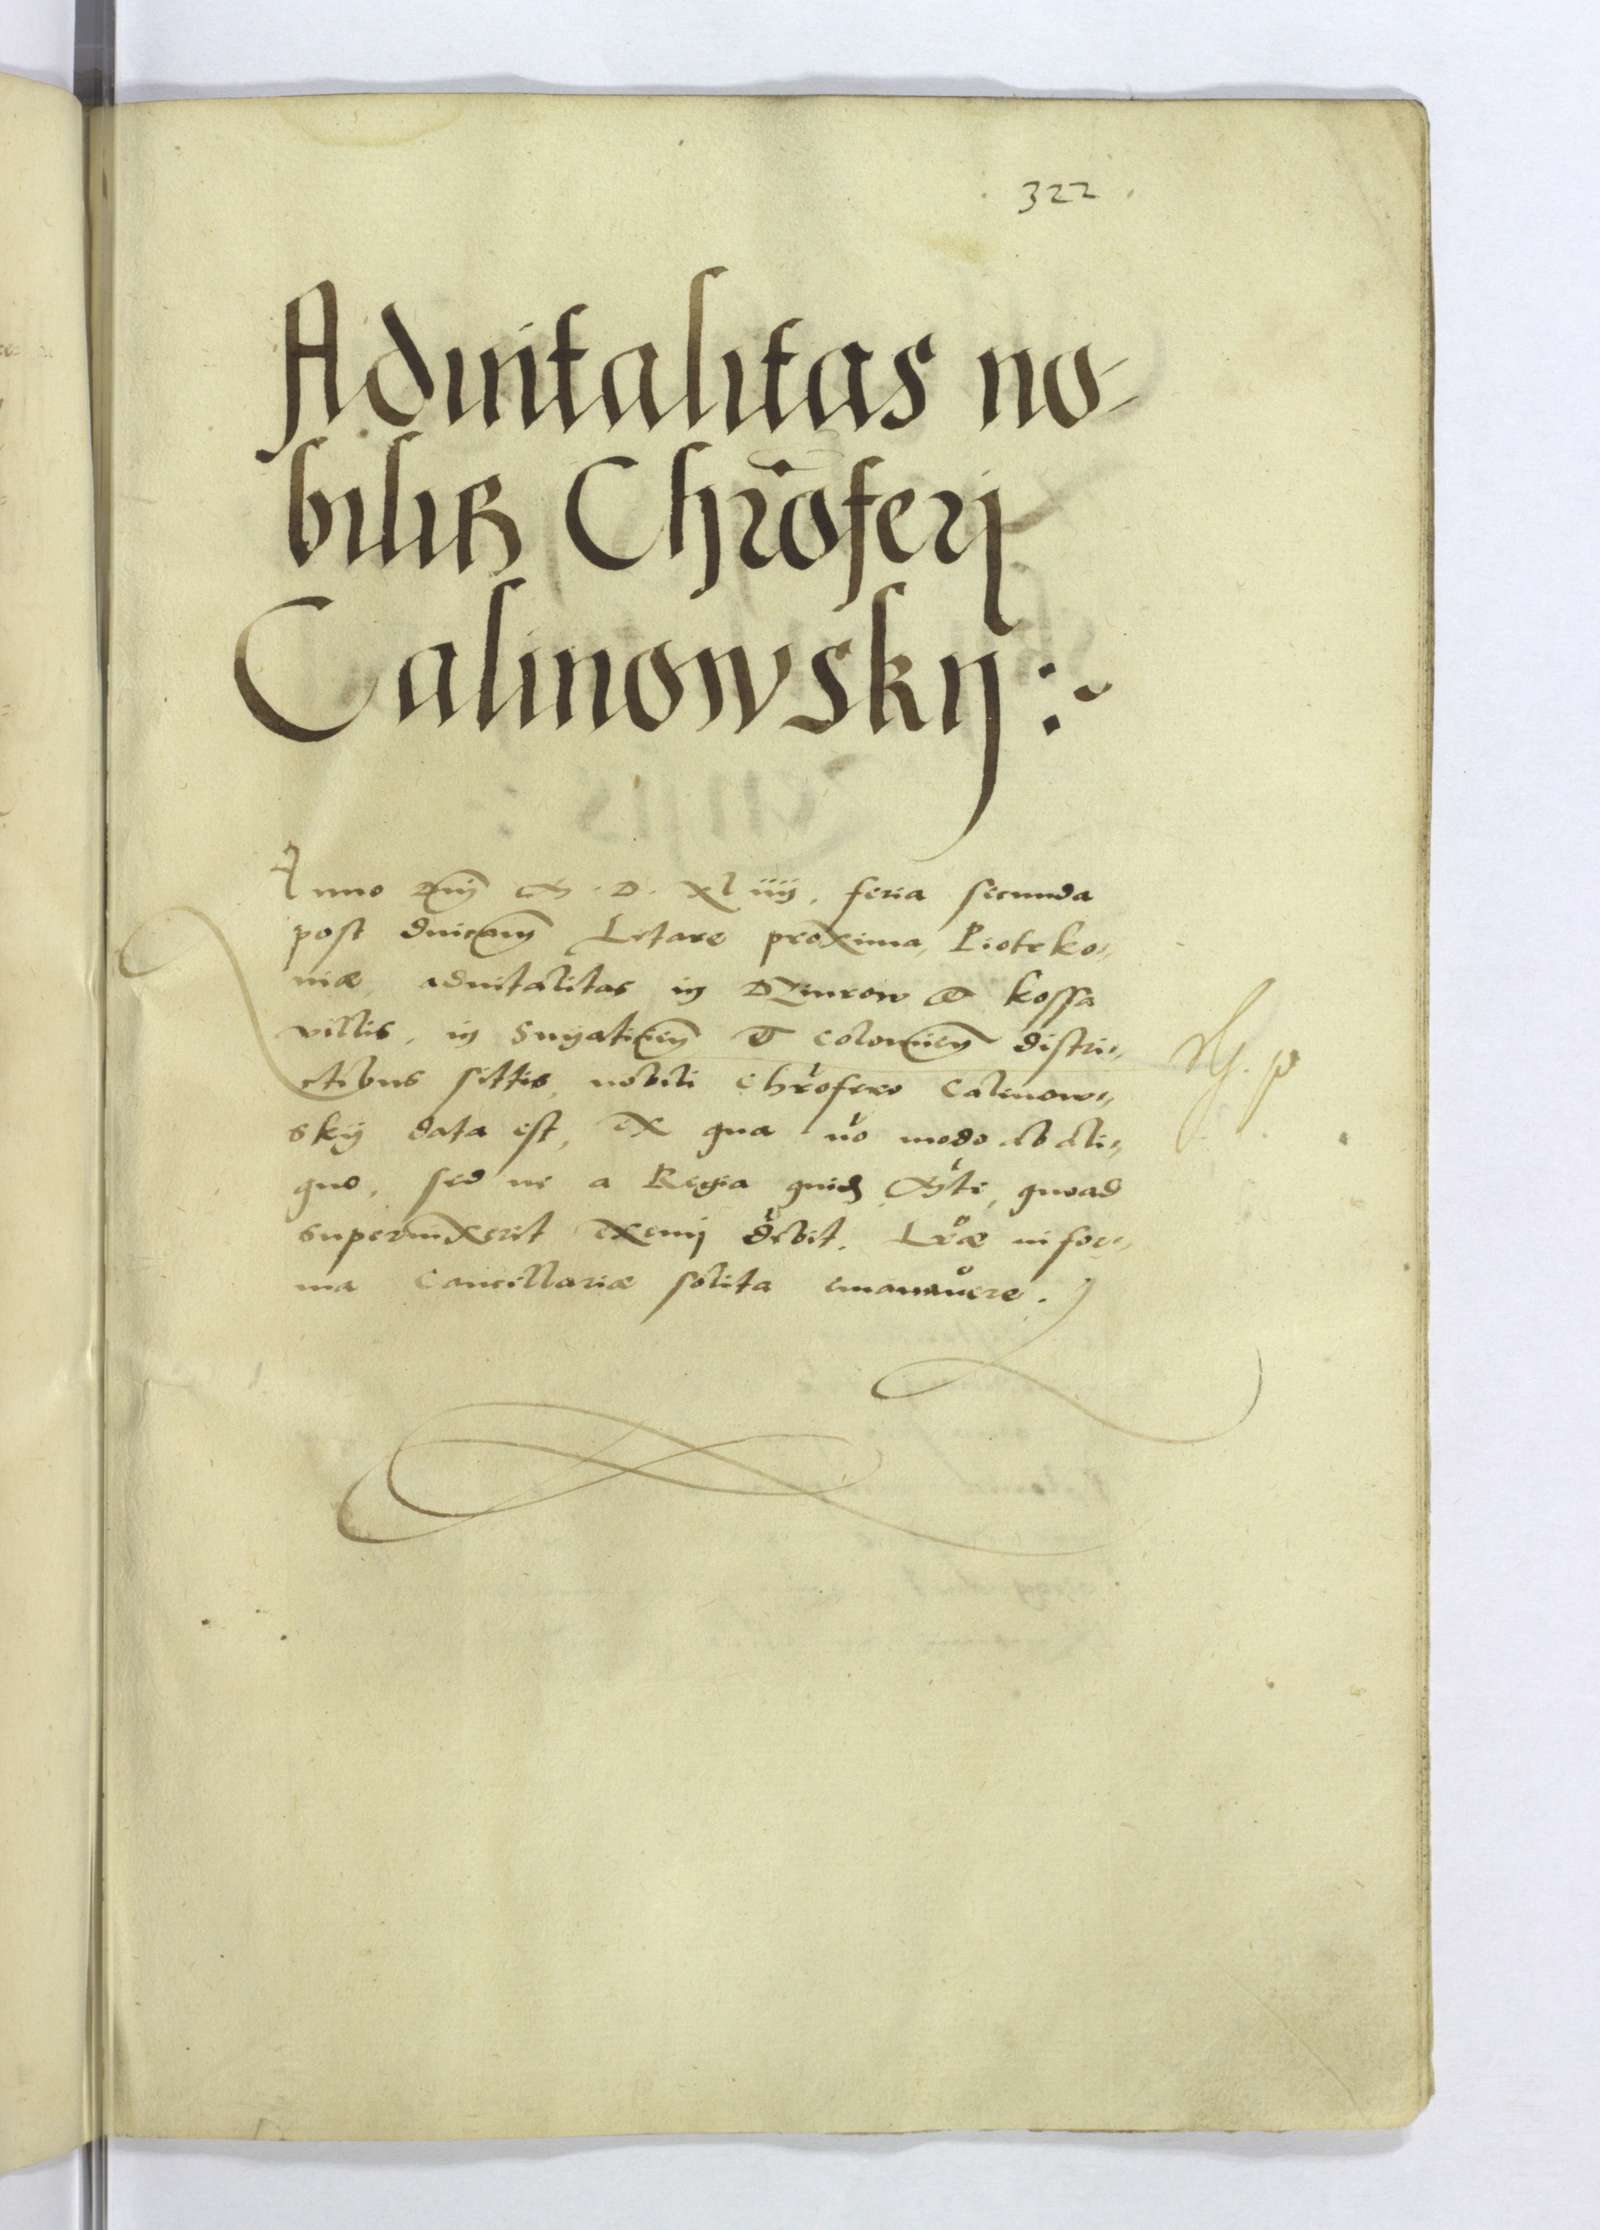 322
Advitalitas no-
bilis Chrõferj
Calinowsky :~
Anno Dnj M. D. xliiij, feria secunda
post dnicam Letare proxima, Piotrko„
niæ, advitalitas in Dzurow et kossa
villis, in Snyaticien et Colomien distri„
ctibus sittis, nobili Chrofero Calinow„
skij data est, ex qua nõ modo ab ali„
quo, sed ne a Regia quidẽ Mte, quoad
supervixerit eximj debit. Lræ in for„
ma Cancillariæ solita emanavere.